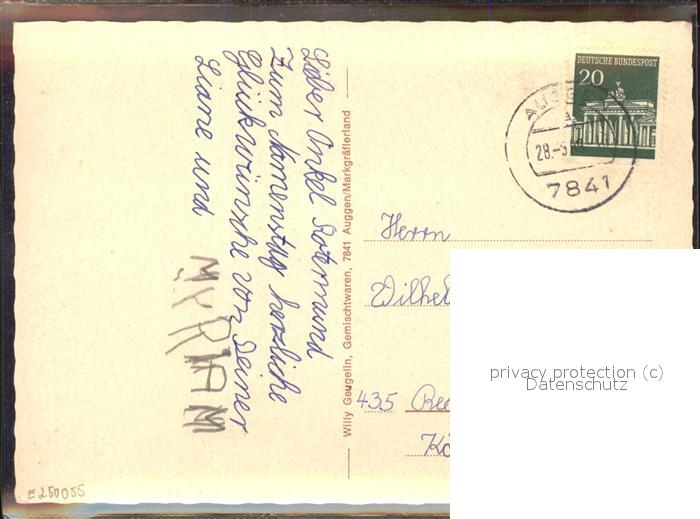 Lieber Onkel Rotermund
Zum Namenstag herzliche
Glückwünsche von Deiner
Liane und
MYRIAM
Willy Geugelin, Gemischtwaren, 7841 Auggen/Markgräflerland
DEUTSCHE BUNDESPOST
20
28.-5
7841
Herrn
Wilhel
435 Rec
Kö
privacy protection (c)
Datenschutz
E250055